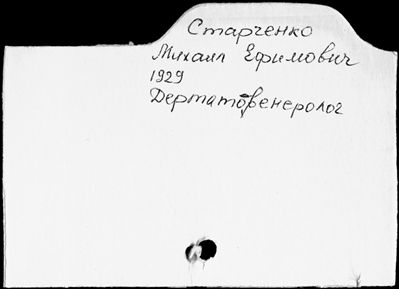 Старченко
Михаил Ефимович
1929
Дерматовенеролог